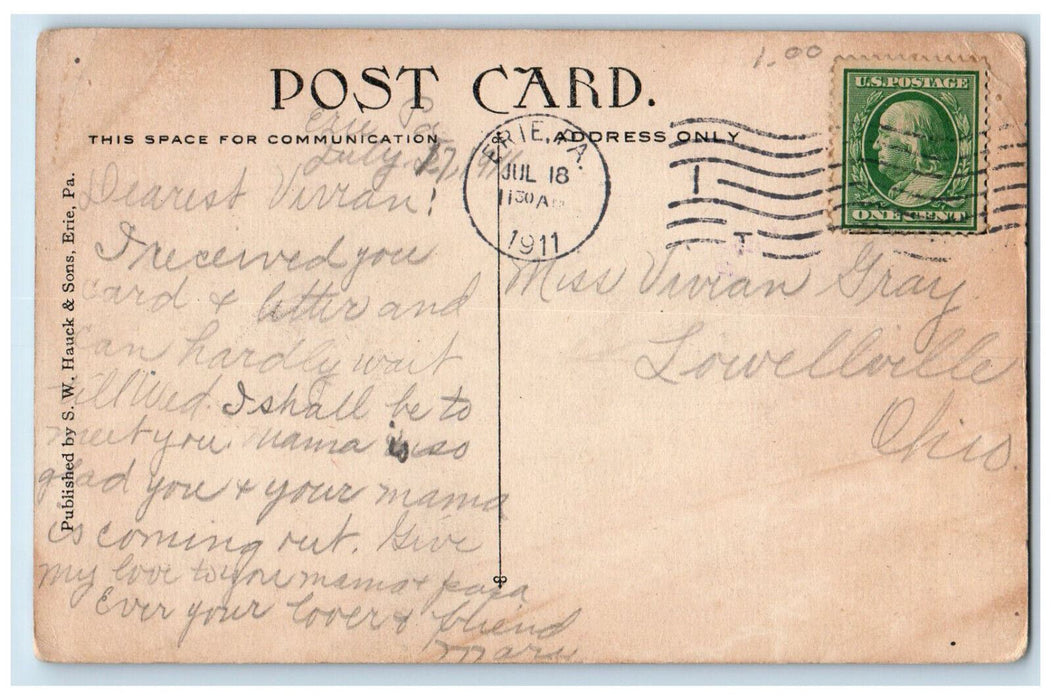 1.00
POST CARD.
U.S. POSTAGE
ONE CENT
THIS SPACE FOR COMMUNICATION
ADDRESS ONLY
ERIE, PA.
JUL 18
1130 A
1911
Published by S. W. Hauck & Sons, Erie, Pa.
Erie Pa
July 17, 1911
Dearest Vivian!
I received you
card & letter and
can hardly wait
till Wed. I shall be to
meet you. Mama is so
glad you & your mama
is coming out. Give
my love to you mama & papa
Ever your lover & friend
Mary
Miss Vivian Gray
Lowellville
Ohio.